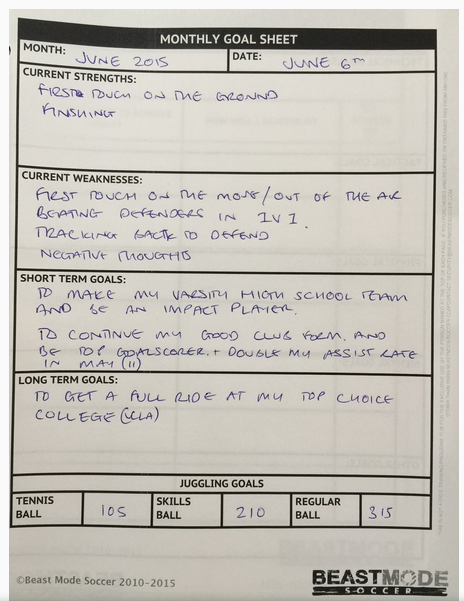 MONTHLY GOAL SHEET
MONTH: JUNE 2015 DATE: JUNE 6TH
CURRENT STRENGTHS:
FIRST TOUCH ON THE GROUND
FINISHING
CURRENT WEAKNESSES:
FIRST TOUCH ON THE MOVE/OUT OF THE AIR
BEATING DEFENDERS IN 1V1.
TRACKING BACK TO DEFEND
NEGATIVE THOUGHTS
SHORT TERM GOALS:
TO MAKE MY VARSITY HIGH SCHOOL TEAM
AND BE AN IMPACT PLAYER.
TO CONTINUE MY GOOD CLUB FORM. AND
BE TOP GOALSCORER. + DOUBLE MY ASSIST RATE
IN MAY (11)
LONG TERM GOALS:
TO GET A FULL RIDE AT MY TOP CHOICE
COLLEGE (UCLA)
JUGGLING GOALS
TENNIS BALL 105 SKILLS BALL 210 REGULAR BALL 315
©Beast Mode Soccer 2010-2015
BEASTMODE
SOCCER